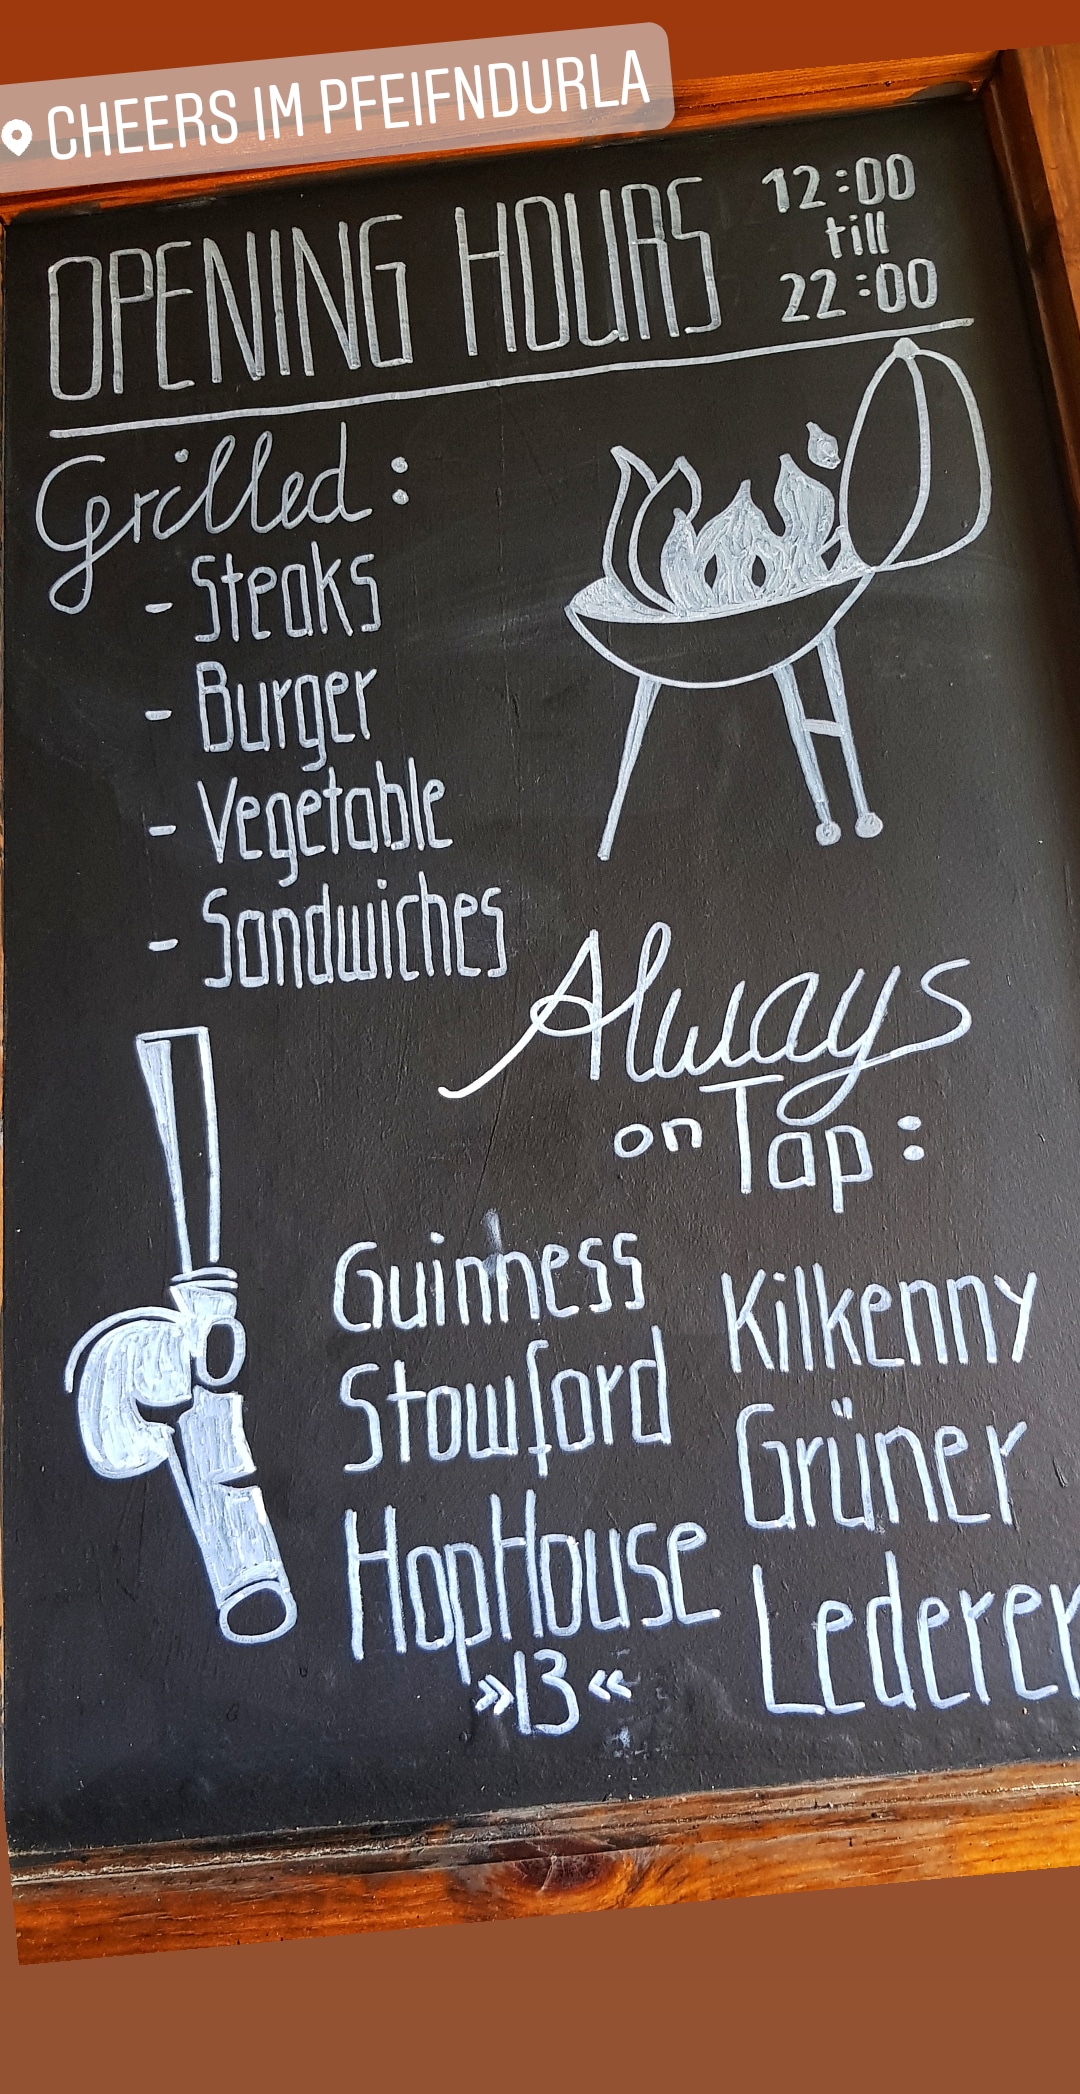 CHEERS IM PFEIFNDURLA
OPENING HOURS
12:00
till
22:00
Grilled:
- Steaks
- Burger
- Vegetable
- Sandwiches
Always
on Tap:
Guinness
Kilkenny
Stowford
Grüner
HopHouse
»13«
Lederer